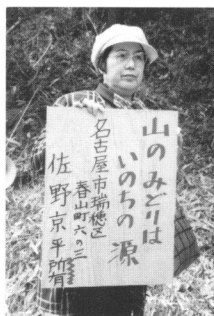 山のみどりは
いのちの源
名古屋市瑞穂区
春山町六の三
佐野京平